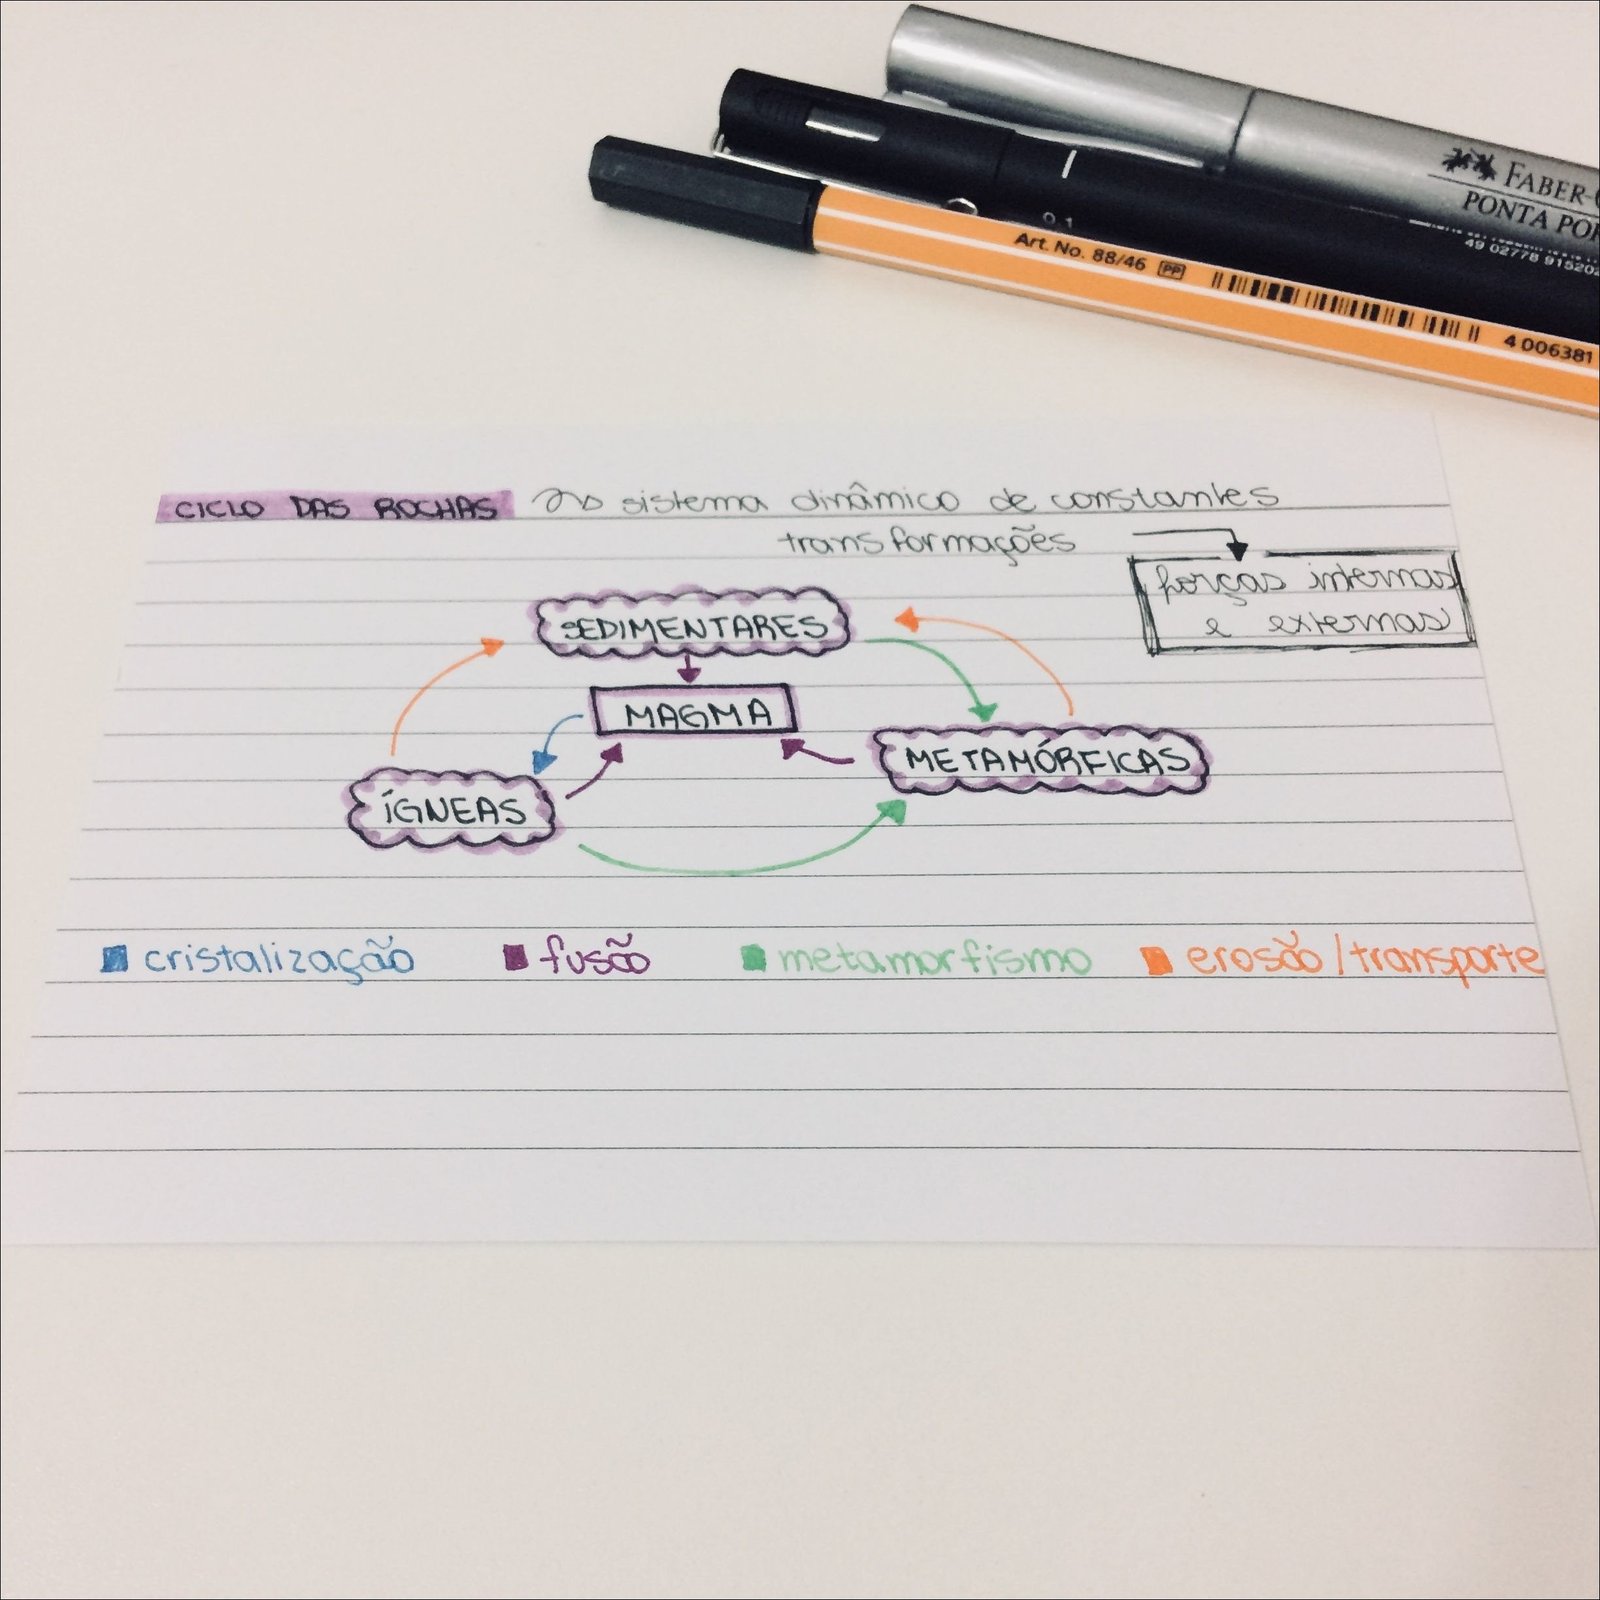 FABER-C
PONTA POR
49 02778 91520
0.1
Art. No. 88/46 PP
4 006381
CICLO DAS ROCHAS sistema dinâmico de constantes
transformações
forças internas
e externas
SEDIMENTARES
MAGMA
METAMÓRFICAS
ÍGNEAS
cristalização fusão metamorfismo erosão/transporte